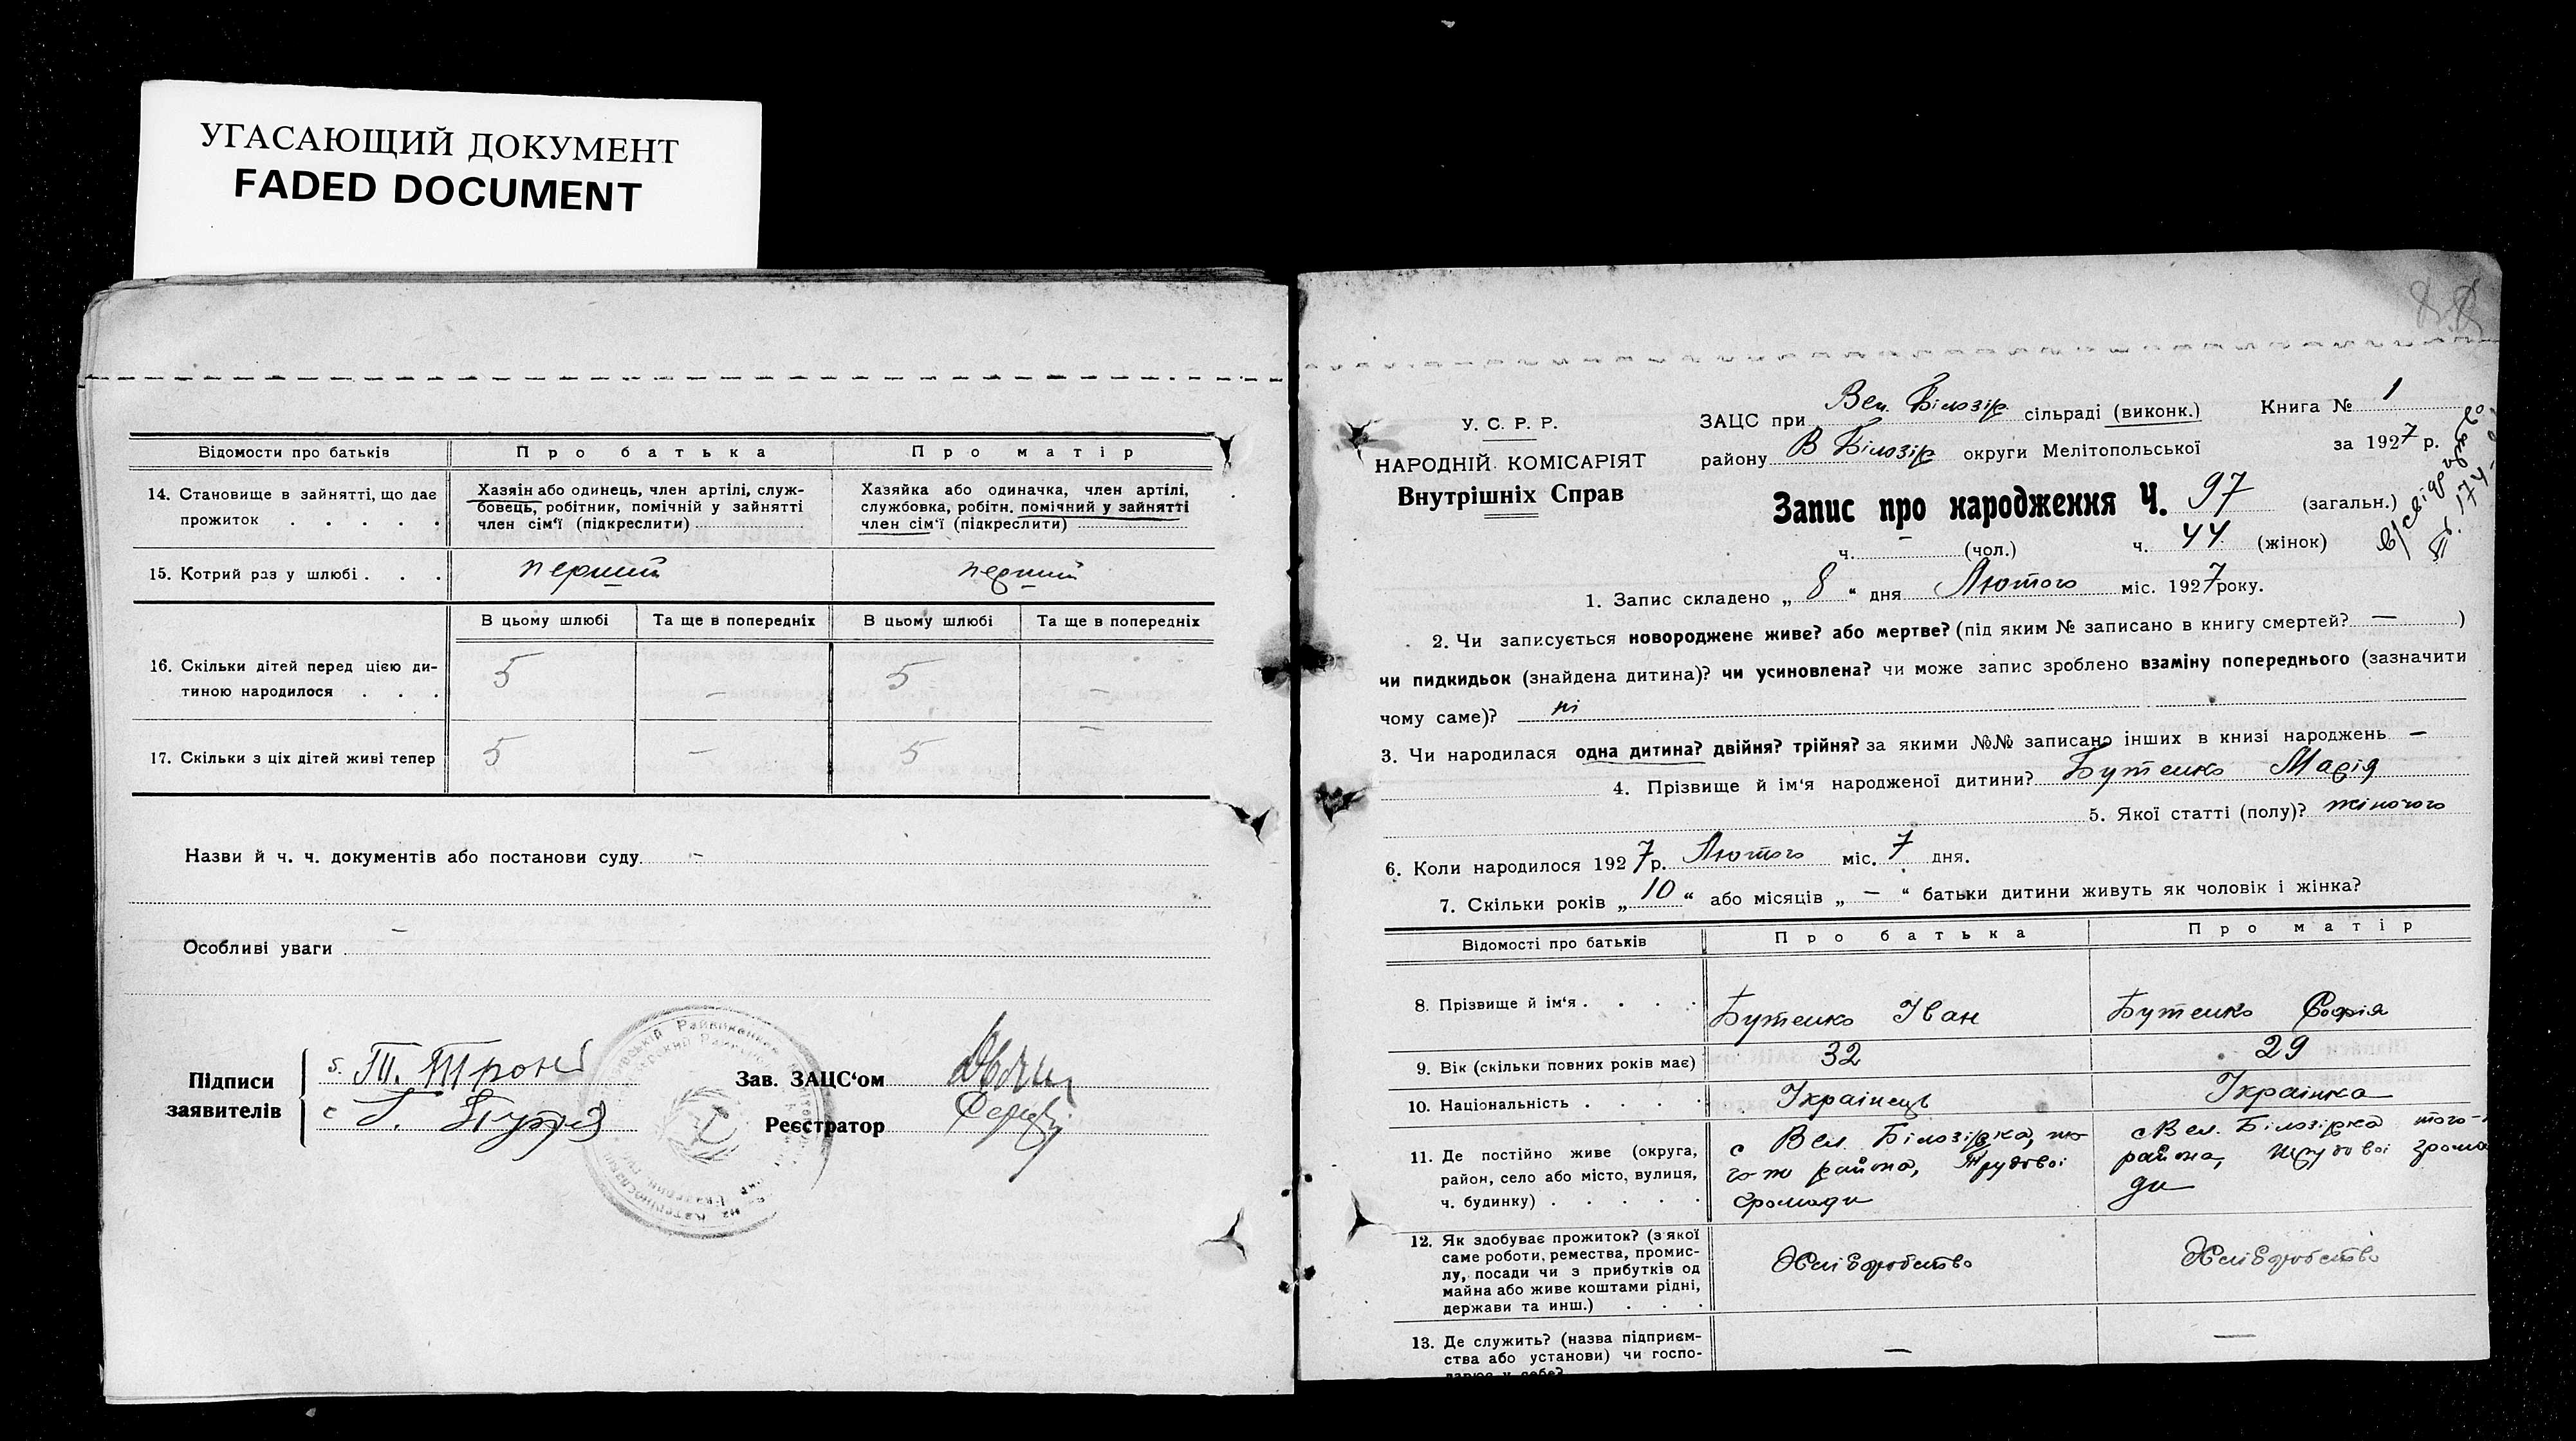 УГАСАЮЩИЙ ДОКУМЕНТ
FADED DOCUMENT
Відомости про батьків
Про батька
Про матір
14. Становище в зайнятті, що дає
прожиток . . . . .
Хазяін або одинець, член артілі, служ-
бовець, робітник, помічній у зайнятті
член сім'ї (підкреслити)
Хазяйка або одиначка, член артілі,
службовка, робітн. помічний у зайнятті
член сім'ї (підкреслити)
15. Котрий раз у шлюбі . . .
перший
перший
В цьому шлюбі
Та ще в попередніх
В цьому шлюбі
Та ще в попередніх
16. Скільки дітей перед цією ди-
тиною народилося . . .
5 – 5 –
17. Скільки з ціх дітей живі тепер
5 – 5 –
Назви й ч. ч. документів або постанови суду –
Особливі уваги –
Підписи
заявителів
Зав. ЗАЦС'ом
Реєстратор
У. С. Р. Р.
НАРОДНІЙ КОМІСАРІЯТ
Внутрішніх Справ
ЗАЦС при Вел. Білозір. сільраді (виконк.)
Книга № 1
району В Білозір округи Мелітопольської
за 1927 р.
Запис про народження Ч. 97 (загальн.)
ч. – (чол.) ч. 44 (жінок)
1. Запис складено „ 8 “ дня Лютого міс. 1927 року.
2. Чи записується новороджене живе? або мертве? (під яким № записано в книгу смертей? — )
чи пидкидьок (знайдена дитина)? чи усиновлена? чи може запис зроблено взаміну попереднього (зазначити
чому саме)? ні
3. Чи народилася одна дитина? двійня? трійня? за якими №№ записано інших в книзі народжень —
4. Прізвище й ім'я народженої дитини? Бутенко Марія
5. Якої статті (полу)? жіночого
6. Коли народилося 1927 р. Лютого міс. 7 дня.
7. Скільки років „ 10 “ або місяців „ — “ батьки дитини живуть як чоловік і жінка?
Відомості про батьків
Про батька
Про матір
8. Прізвище й ім'я . . . .
Бутенко Іван
Бутенко Софія
9. Вік (скільки повних років має)
32
29
10. Національність . . . .
Українець
Українка
11. Де постійно живе (округа,
район, село або місто, вулиця,
ч. будинку) . . . . .
с Вел. Білозірка, то-
го-ж района, Трудової
громади
с Вел. Білозірка того-
района, трудової грома
ди
12. Як здобуває прожиток? (з якої
саме роботи, ремества, промис-
лу, посади чи з прибутків од
майна або живе коштами рідні,
держави та инш.) . . .
Хліборобство
Хліборобство
13. Де служить? (назва підприєм-
ства або установи) чи госпо-
дарює у себе?
—
—